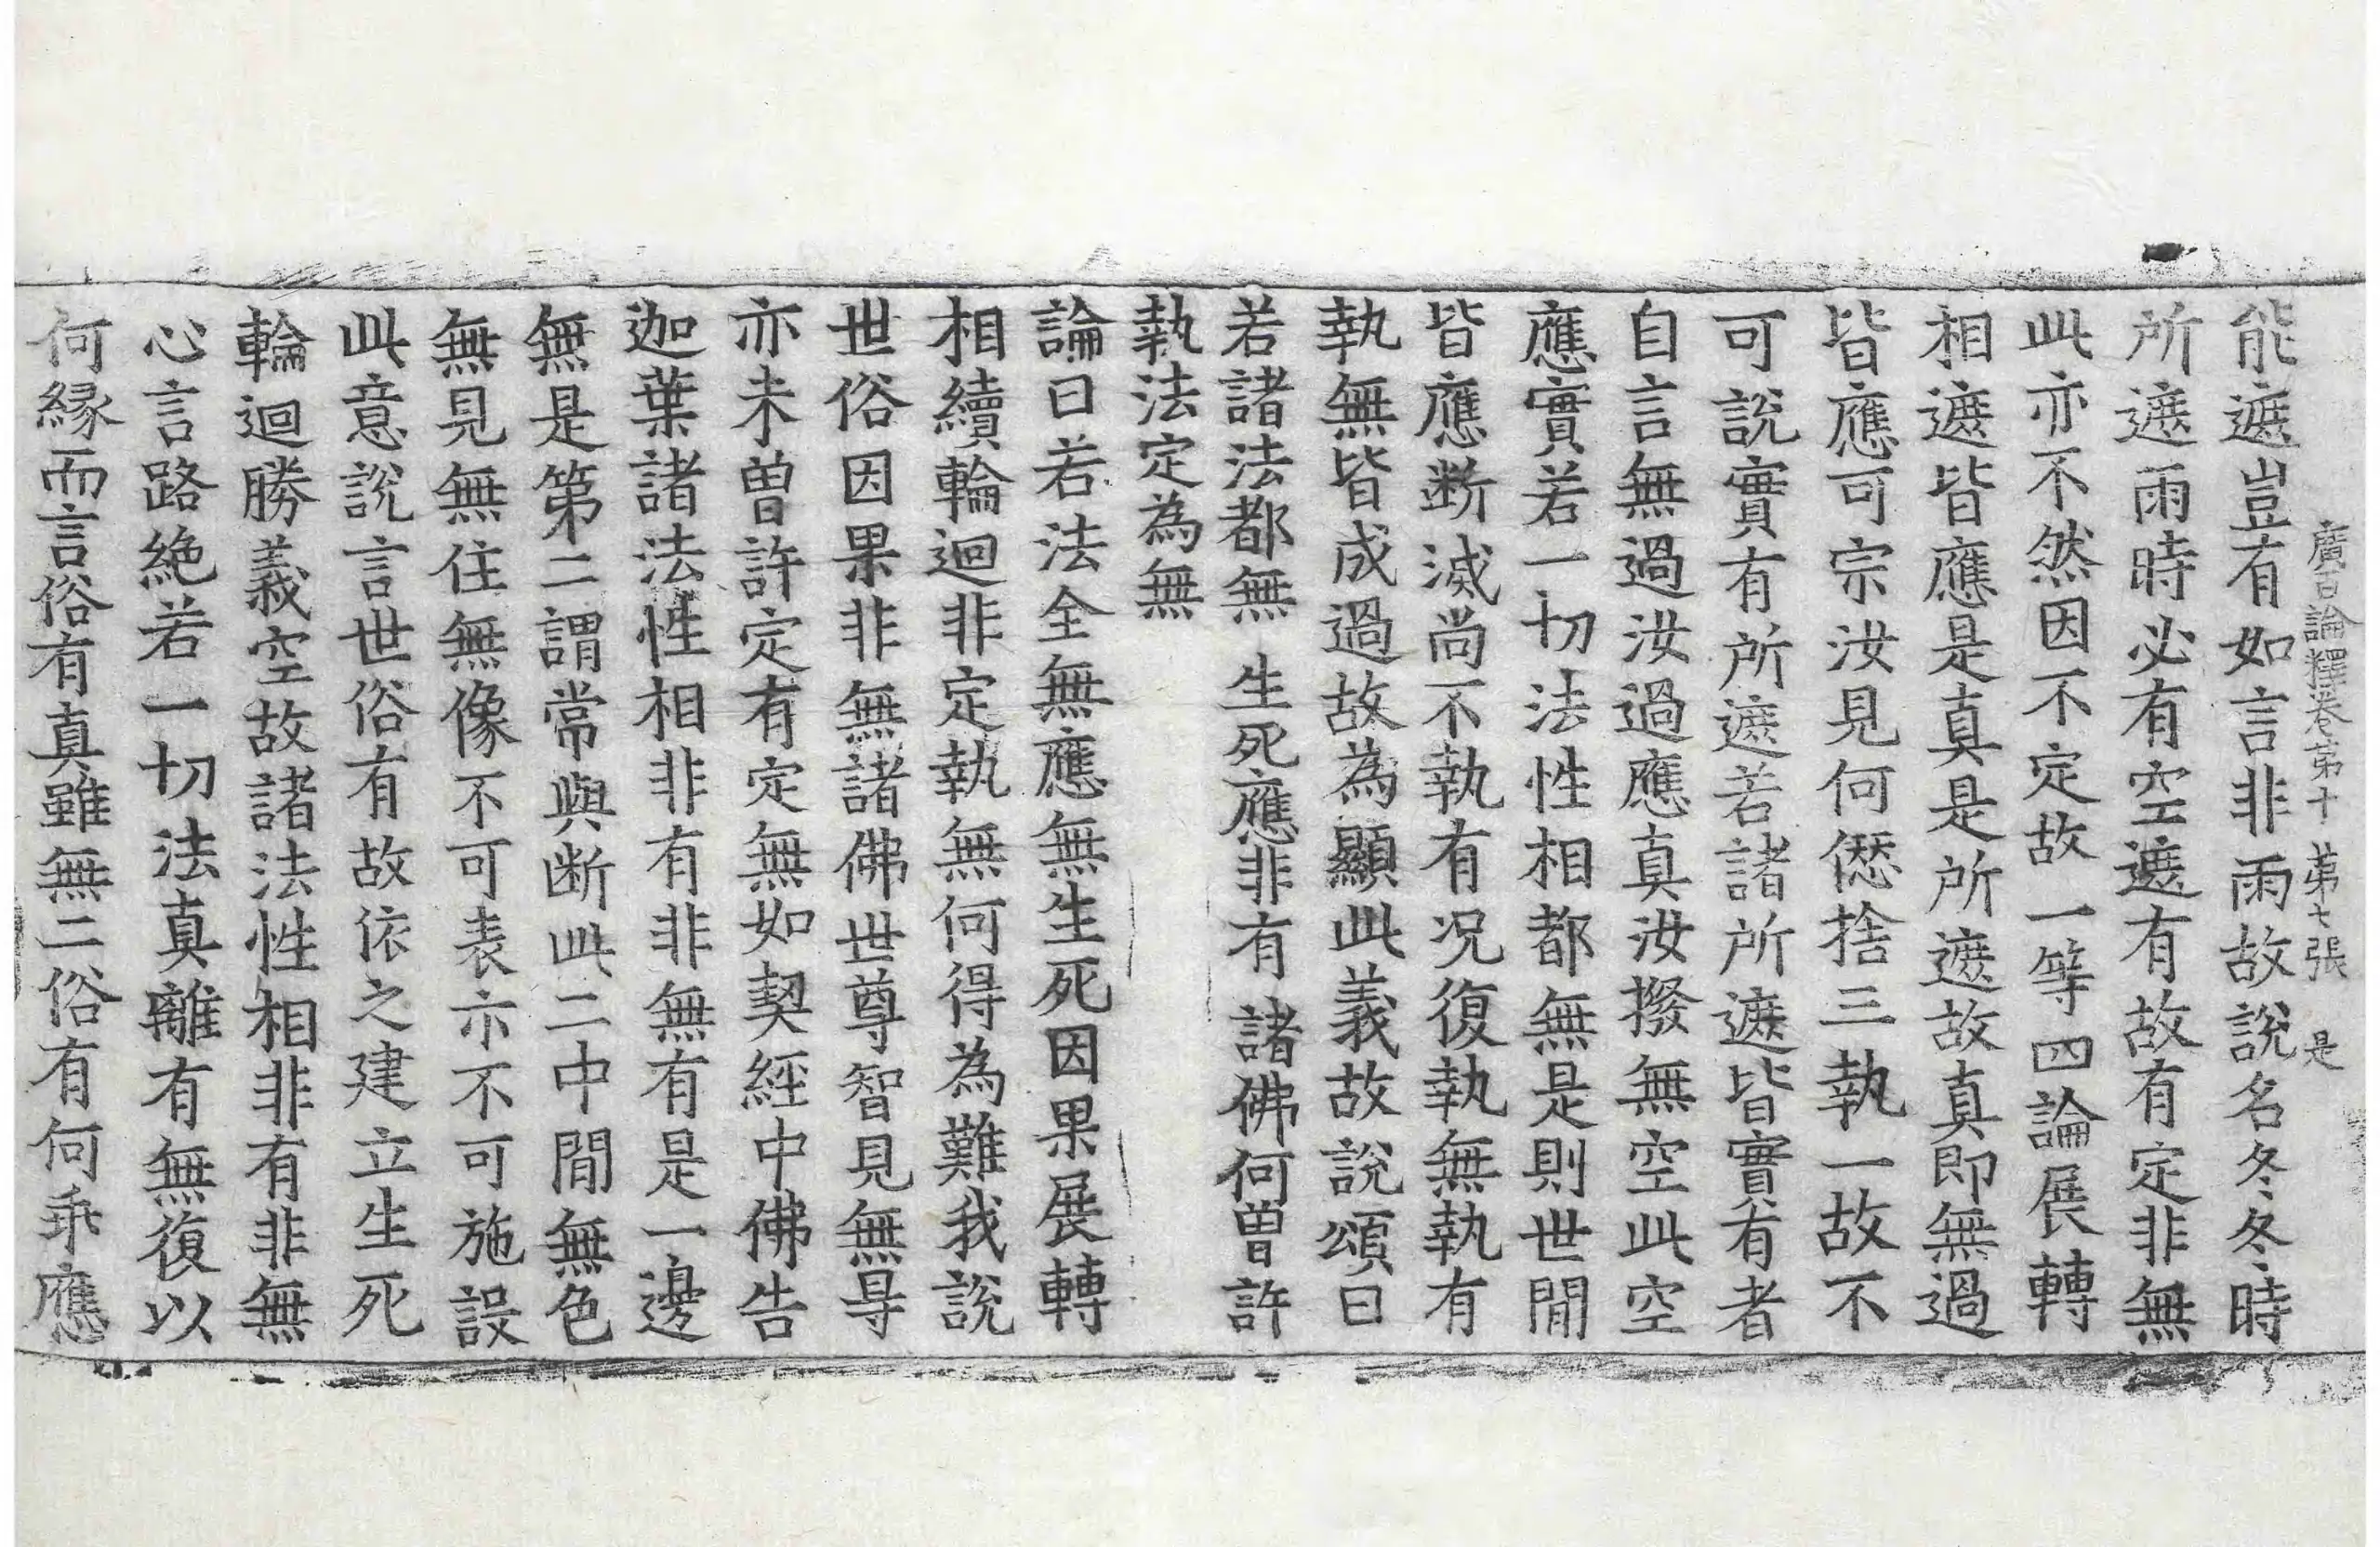 廣百論釋卷第十　第七張　是
能遮豈有如言非雨故說名冬冬時
所遮雨時必有空遮有故有定非無
此亦不然因不定故一等四論展轉
相遮皆應是真是所遮故真即無過
皆應可宗汝見何僁捨三執一故不
可說實有所遮若諸所遮皆實有者
自言無過汝過應真汝撥無空此空
應實若一切法性相都無是則世閒
皆應断滅尚不執有况復執無執有
執無皆成過故為顯此義故說頌曰
若諸法都無　生死應非有　諸佛何曽許
執法定為無
論曰若法全無應無生死因果展轉
相續輪迴非定執無何得為難我說
世俗因果非無諸佛世尊智見無㝵
亦未曽許定有定無如契經中佛告
迦葉諸法性相非有非無有是一邊
無是第二謂常與断此二中閒無色
無見無住無像不可表示不可施設
此意說言世俗有故依之建立生死
輪迴勝義空故諸法性相非有非無
心言路絶若一切法真離有無復以
何縁而言俗有真雖無二俗有何乖應